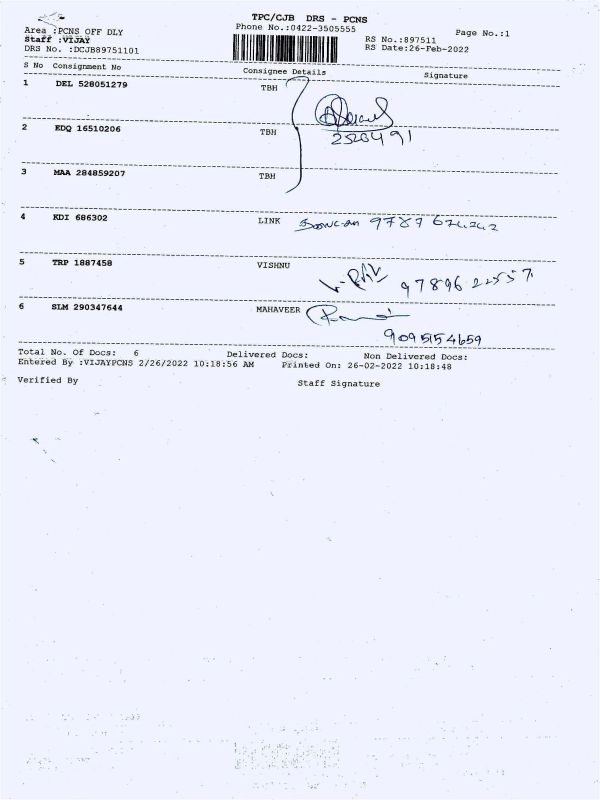 TPC/CJB DRS - PCNS
Area :PCNS OFF DLY
Phone No.:0422-3505555
Page No.:1
Staff :VIJAY
RS No.:897511
DRS No. :DCJB89751101
RS Date:26-Feb-2022
S No Consignment No Consignee Details Signature
1 DEL 528051279 TBH
2 EDQ 16510206 TBH
3 MAA 284859207 TBH
4 KDI 686302 LINK 9787 674242
5 TRP 1887458 VISHNU
97896 22557
6 SLM 290347644 MAHAVEER
9095154659
Total No. Of Docs: 6 Delivered Docs: Non Delivered Docs:
Entered By :VIJAYPCNS 2/26/2022 10:18:56 AM Printed On: 26-02-2022 10:18:48
Verified By Staff Signature